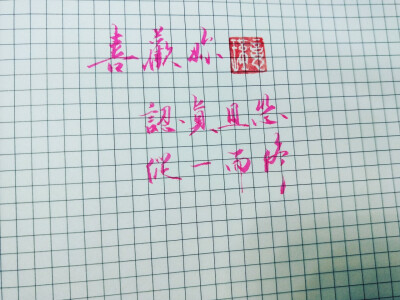 喜歡妳
認真且怂
從一而終